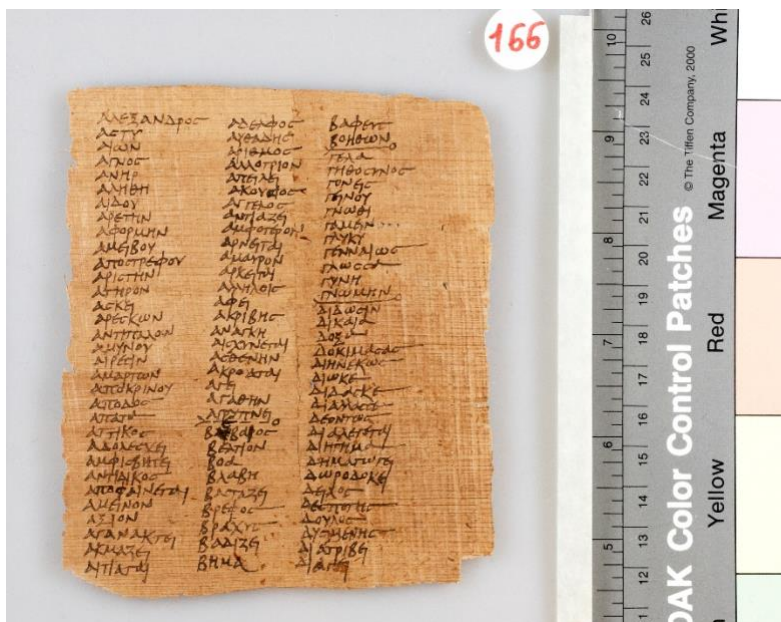 ΑΛΕΞΑΝΔΡΟϹ
ΑϹΤΥ
ΑΙΩΝ
ΑΓΝΟϹ
ΑΝΗΡ
ΑΛΗΘΗ
ΑΙΔΟΥ
ΑΡΕΤΗΝ
ΑΦΟΡΜΗΝ
ΑΜΕΙΒΟΥ
ΑΠΟϹΤΡΕΦΟΥ
ΑΡΙϹΤΗΝ
ΑΓΗΡΟΝ
ΑϹΚΕΙ
ΑΡΕϹΚΩΝ
ΑΙΡΕϹΙΝ
ΑΜΑΡΤΩΝ
ΑΠΟΚΡΙΝΟΥ
ΑΠΟΔΟϹ
ΑΤΤΙΚΟϹ
ΑΔΟΛΕϹΧΕΙ
ΑΜΦΙϹΒΗΤΕΙ
ΑΝΤΙΔΙΚΟϹ
ΑΠΟΦΑΙΝΕΤΑΙ
ΑΜΕΙΝΟΝ
ΑΞΙΟΝ
ΑΓΑΝΑΚΤΕΙ
ΑΚΜΑΖΕΙ
ΑΙΤΙΑΤΑΙ
ΑΔΕΛΦΟϹ
ΑΥΘΑΔΗϹ
ΑΡΙΘΜΟϹ
ΑΛΛΟΤΡΙΟΝ
ΑΠΕΙΛΕΙ
ΑΚΟΥϹΙΟϹ
ΑΓΓΕΛΟϹ
ΑΝΤΙΑΖΕΙ
ΑΜΦΟΤΕΡΟΝ
ΑΡΝΕΙΤΑΙ
ΑΜΑΥΡΟΝ
ΑΡΚΕΙΤΑΙ
ΑΛΛΗΛΟΙϹ
ΑΦΕΙ
ΑΚΡΙΒΗϹ
ΑΝΑΓΚΗ
ΑΙϹΧΥΝΕΤΑΙ
ΑϹΘΕΝΗΝ
ΑΚΡΟΑΤΑΙ
ΑΓΕΙ
ΑΓΑΘΗΝ
ΑΓΡΥΠΝΕΙ
ΒΑΡΒΑΡΟϹ
ΒΕΛΤΙΟΝ
ΒΟΑ
ΒΛΑΒΗ
ΒΑϹΤΑΖΕΙ
ΒΡΕΦΟϹ
ΒΡΑΧΥϹ
ΒΑΔΙΖΕΙ
ΒΗΜΑ
ΒΑΦΕΥϹ
ΒΟΗΘΩΝ
ΓΕΛΑ
ΓΗΘΟϹΥΝΟϹ
ΓΟΝΕΙϹ
ΓΕΝΟΥ
ΓΝΩΘΙ
ΓΑΜΕΙΝ
ΓΛΥΚΥ
ΓΕΝΝΑΙΩϹ
ΓΛΩϹϹΑ
ΓΥΝΗ
ΓΝΩΜΗΝ
ΔΙΔΩϹΙΝ
ΔΙΚΑΙΑ
ΔΟΞΑ
ΔΟΚΙΜΑϹΑϹ
ΔΙΗΝΕΚΩϹ
ΔΙΩΚΕ
ΔΙΔΑϹΚΕ
ΔΕΟΝΤΩϹ
ΔΙΑΛΕΓΕΤΑΙ
ΔΙΗΓΗΜΑ
ΔΗΜΑΓΩΓΕΙ
ΔΩΡΟΔΟΚΕΙ
ΔΕΙΛΟϹ
ΔΕϹΠΟΤΗϹ
ΔΟΥΛΟϹ
ΔΥϹΜΕΝΗϹ
ΔΙΑΤΡΙΒΕΙ
ΔΙΑΓΕΙ
166
© The Tiffen Company, 2000
Color Control Patches
Magenta
Red
Yellow